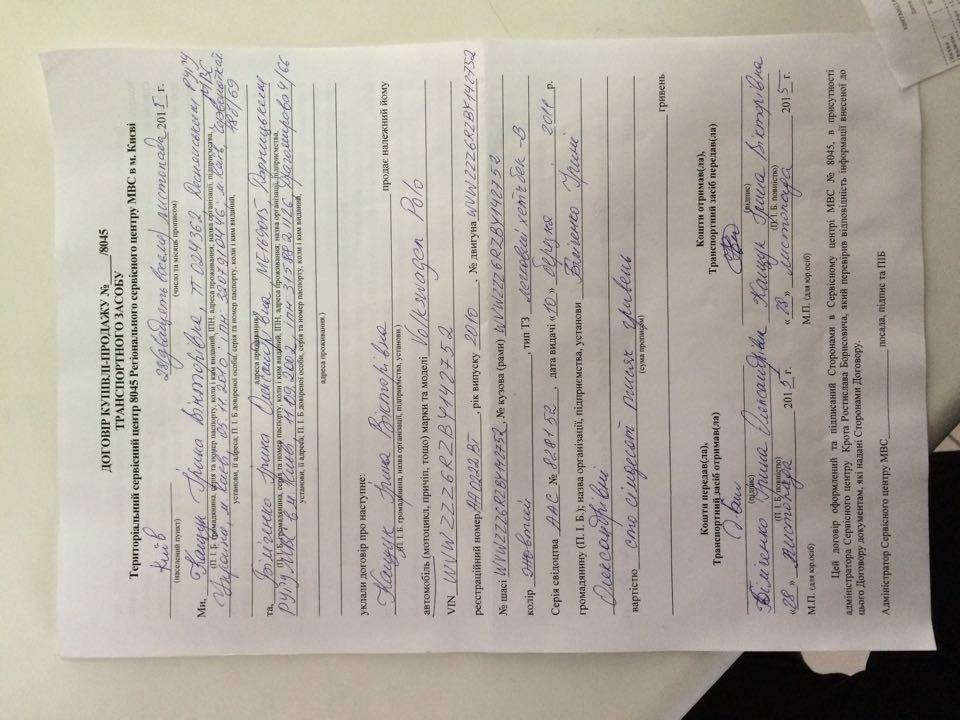 ДОГОВІР КУПІВЛІ-ПРОДАЖУ № ____/8045
ТРАНСПОРТНОГО ЗАСОБУ
Територіальний сервісний центр 8045 Регіонального сервісного центру МВС в м. Києві
Київ 28 двадцять восьме листопада 2015 г.
(населений пункт) (число та місяць прописом)
Ми, Кащук Ірина Вікторівна,
(П. І. Б. громадянина, серія та номер паспорту, коли і ким виданий, ІПН, адреса проживання, назва організації, підприємства,
Україна, м. Київ
установи, її адреса, П. І. Б довіреної особи, серія та номер паспорту, коли і ким виданий,
адреса проживання.)
та, Біліченко Ірина Олександрівна МЕ 169015 Дарницьким
(П. І. Б. громадянина, серія та номер паспорту, коли і ким виданий, ІПН, адреса проживання, назва організації, підприємства,
установи, її адреса, П. І. Б довіреної особи, серія та номер паспорту, коли і ким виданий,
адреса проживання.)
уклали договір про наступне:
Кащук Ірина Вікторівна продає належний йому
(П. І. Б. громадянина, назва організації, підприємства, установи.)
автомобіль (мотоцикл, причіп, тощо) марки та моделі Volkswagen Polo
VIN WVWZZZ6RZBY142752
реєстраційний номер , рік випуску 2010 , № двигуна WVWZZZ6RZBY142752
№ шасі WVWZZZ6RZBY142752, № кузова (рами) WVWZZZ6RZBY142752
колір жовтий , тип ТЗ легковий хетчбек -В
Серія свідоцтва ААС № 828152 , дата видачі «10» 2011 р.
громадянину (П. І. Б.); назва організації, підприємства, установи Біліченко Ірині
Олександрівні
вартістю сто сімдесят тисяч гривень
(сума прописом)
гривень
Кошти передав(ла), Кошти отримав(ла),
Транспортний засіб отримав(ла) Транспортний засіб передав(ла)
(підпис) (підпис)
Біліченко Ірина Олександрівна Кащук Ірина Вікторівна
(П. І. Б. повністю) (П. І. Б. повністю)
«28» листопада 2015 г. «28» листопада 2015 г.
М.П. (для юр.осіб) М.П. (для юр.осіб)
Цей договір оформлений та підписаний Сторонами в Сервісному центрі МВС № 8045, в присутності
адміністратора Сервісного центру Крота Ростислава Борисовича, який перевірив відповідність інформації внесеної до
цього Договору документам, які надані Сторонами Договору.
Адміністратор Сервісного центру МВС посада, підпис та ПІБ